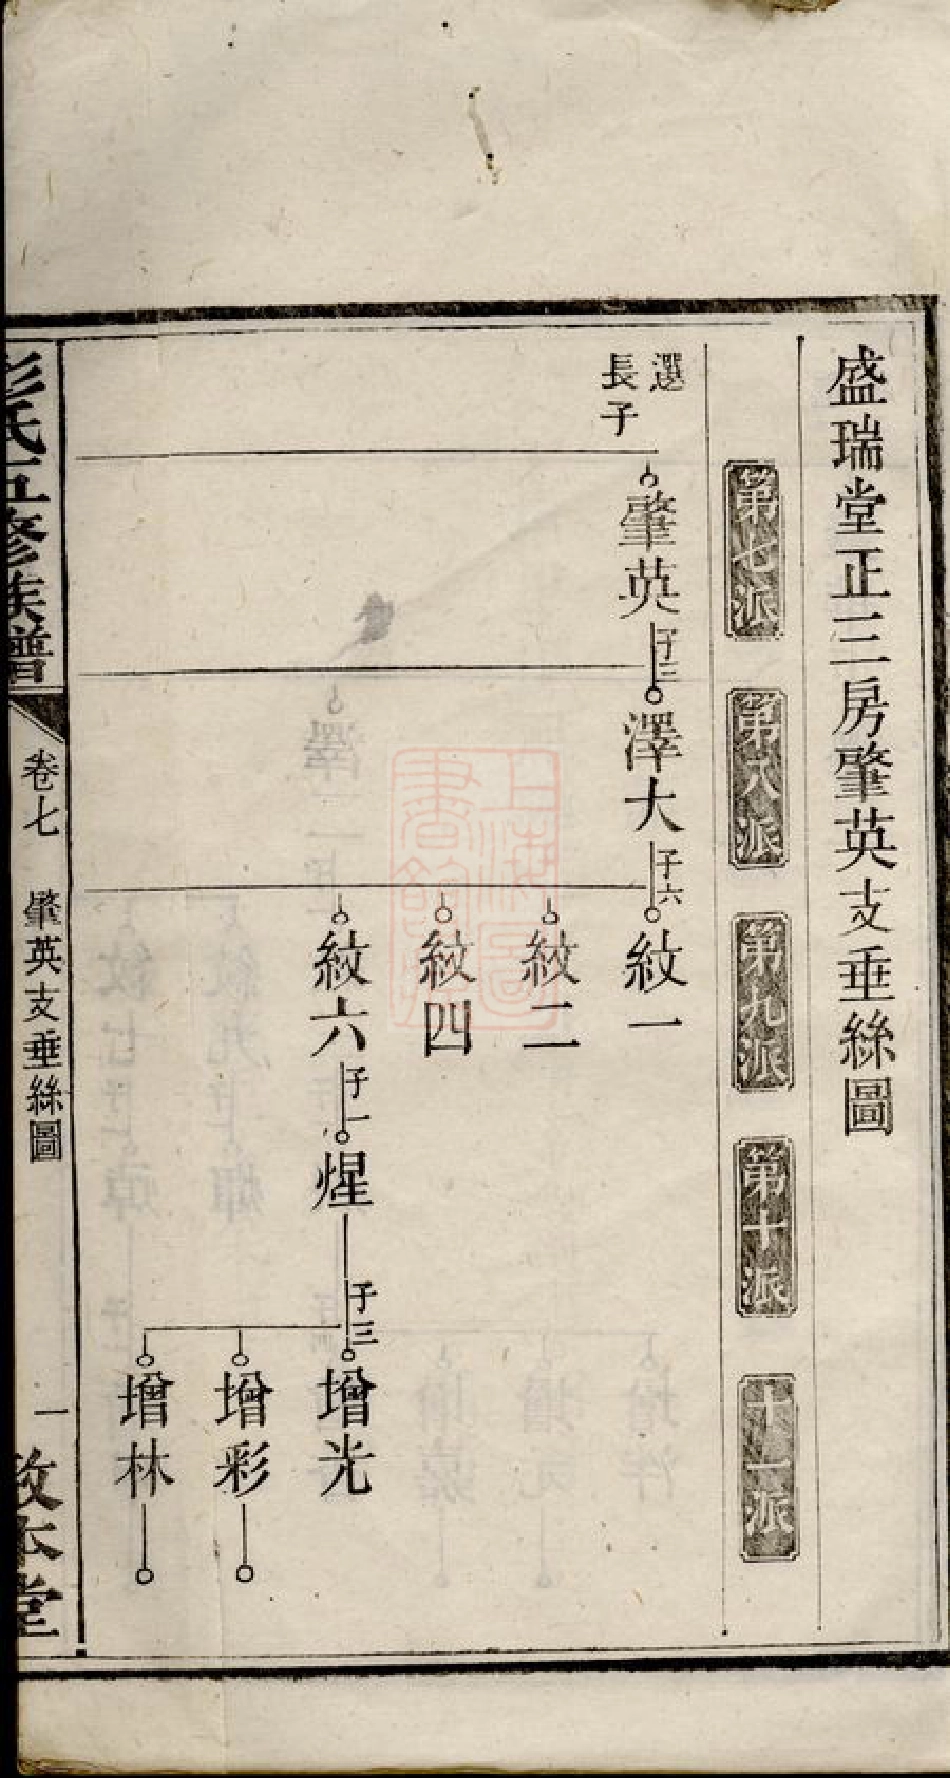 盛瑞堂正三房肇英支垂絲圖
第七派
第八派
第九派
第十派
十一派
選
長子
肇英
子三
澤大
子六
紋一
紋二
紋四
紋六
子一
煋
子三
增光
增彩
增林
彭氏五修族譜
卷七
肇英支垂絲圖
一
敦本堂
上海圖
書館藏